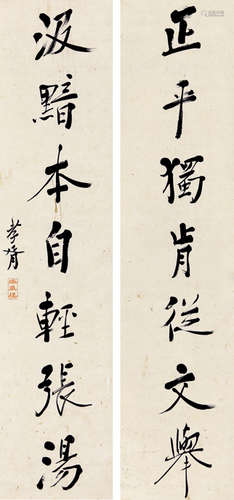 正平獨肯從文舉
汲黯本自輕張湯
孝胥